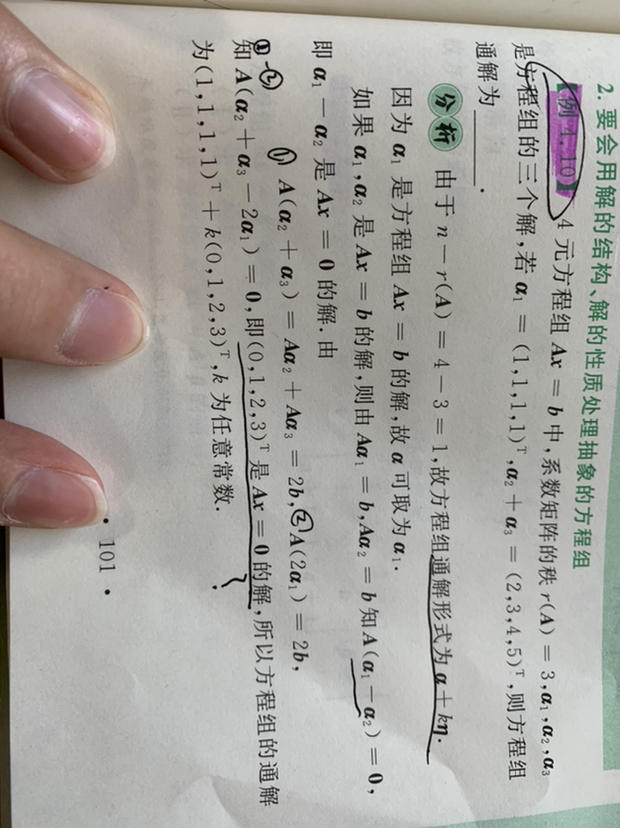 2. 要会用解的结构、解的性质处理抽象的方程组
【例 4.10】 4 元方程组 Ax = b 中,系数矩阵的秩 r(A) = 3,α₁,α₂,α₃
是方程组的三个解,若 α₁ = (1,1,1,1)ᵀ,α₂ + α₃ = (2,3,4,5)ᵀ,则方程组
通解为______.
分析 由于 n − r(A) = 4 − 3 = 1,故方程组通解形式为 α + kη.
因为 α₁ 是方程组 Ax = b 的解,故 α 可取为 α₁.
如果 α₁,α₂ 是 Ax = b 的解,则由 Aα₁ = b,Aα₂ = b 知 A(α₁ − α₂) = 0,
即 α₁ − α₂ 是 Ax = 0 的解.由
① A(α₂ + α₃) = Aα₂ + Aα₃ = 2b,② A(2α₁) = 2b,
①-②
知 A(α₂ + α₃ − 2α₁) = 0,即(0,1,2,3)ᵀ 是 Ax = 0 的解,所以方程组的通解
为(1,1,1,1)ᵀ + k(0,1,2,3)ᵀ,k 为任意常数. ?
• 101 •